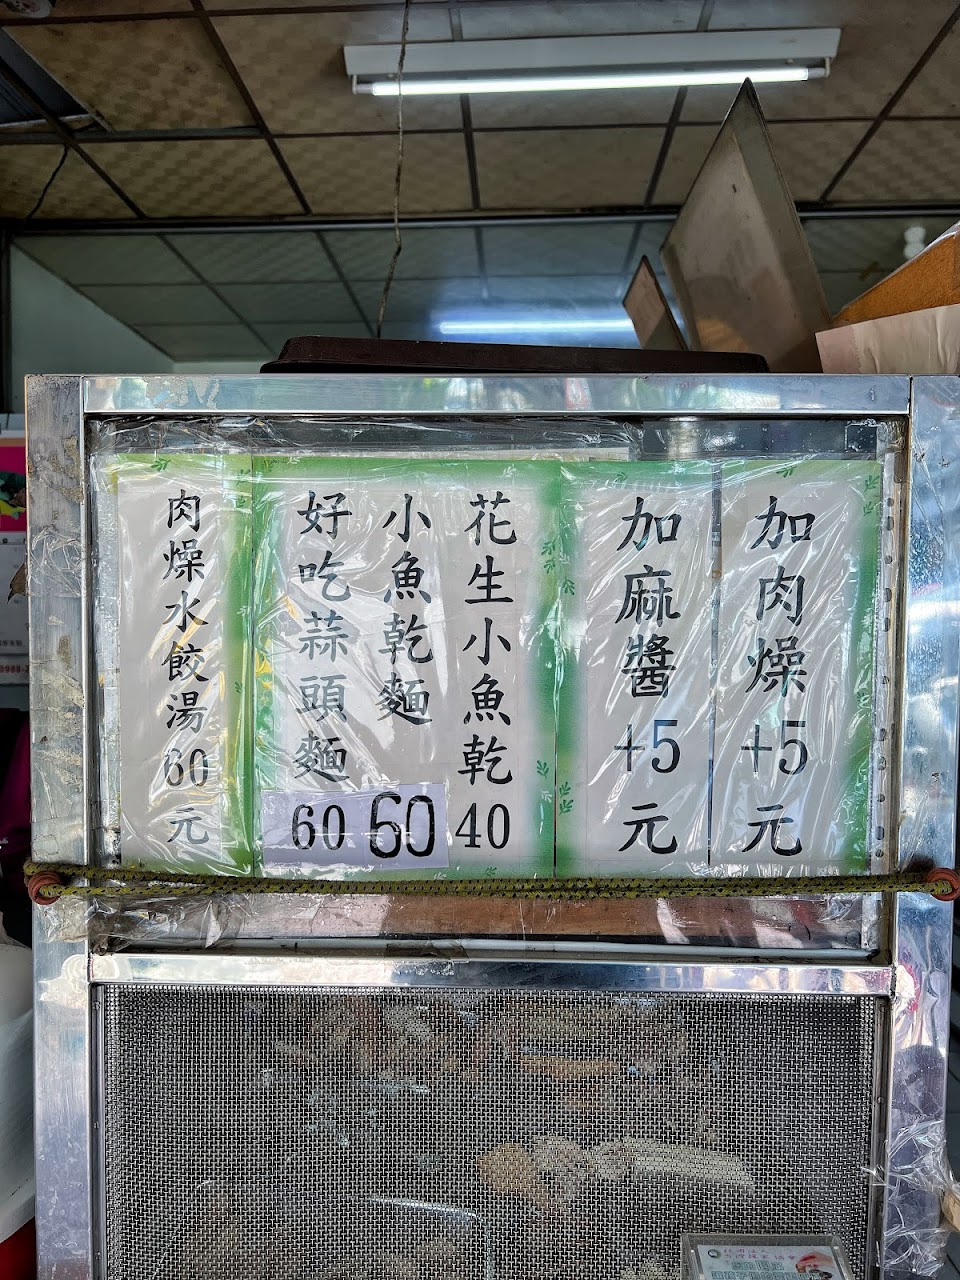 加肉燥+5元
加麻醬+5元
花生小魚乾40
小魚乾麵60
好吃蒜頭麵60
肉燥水餃湯60元